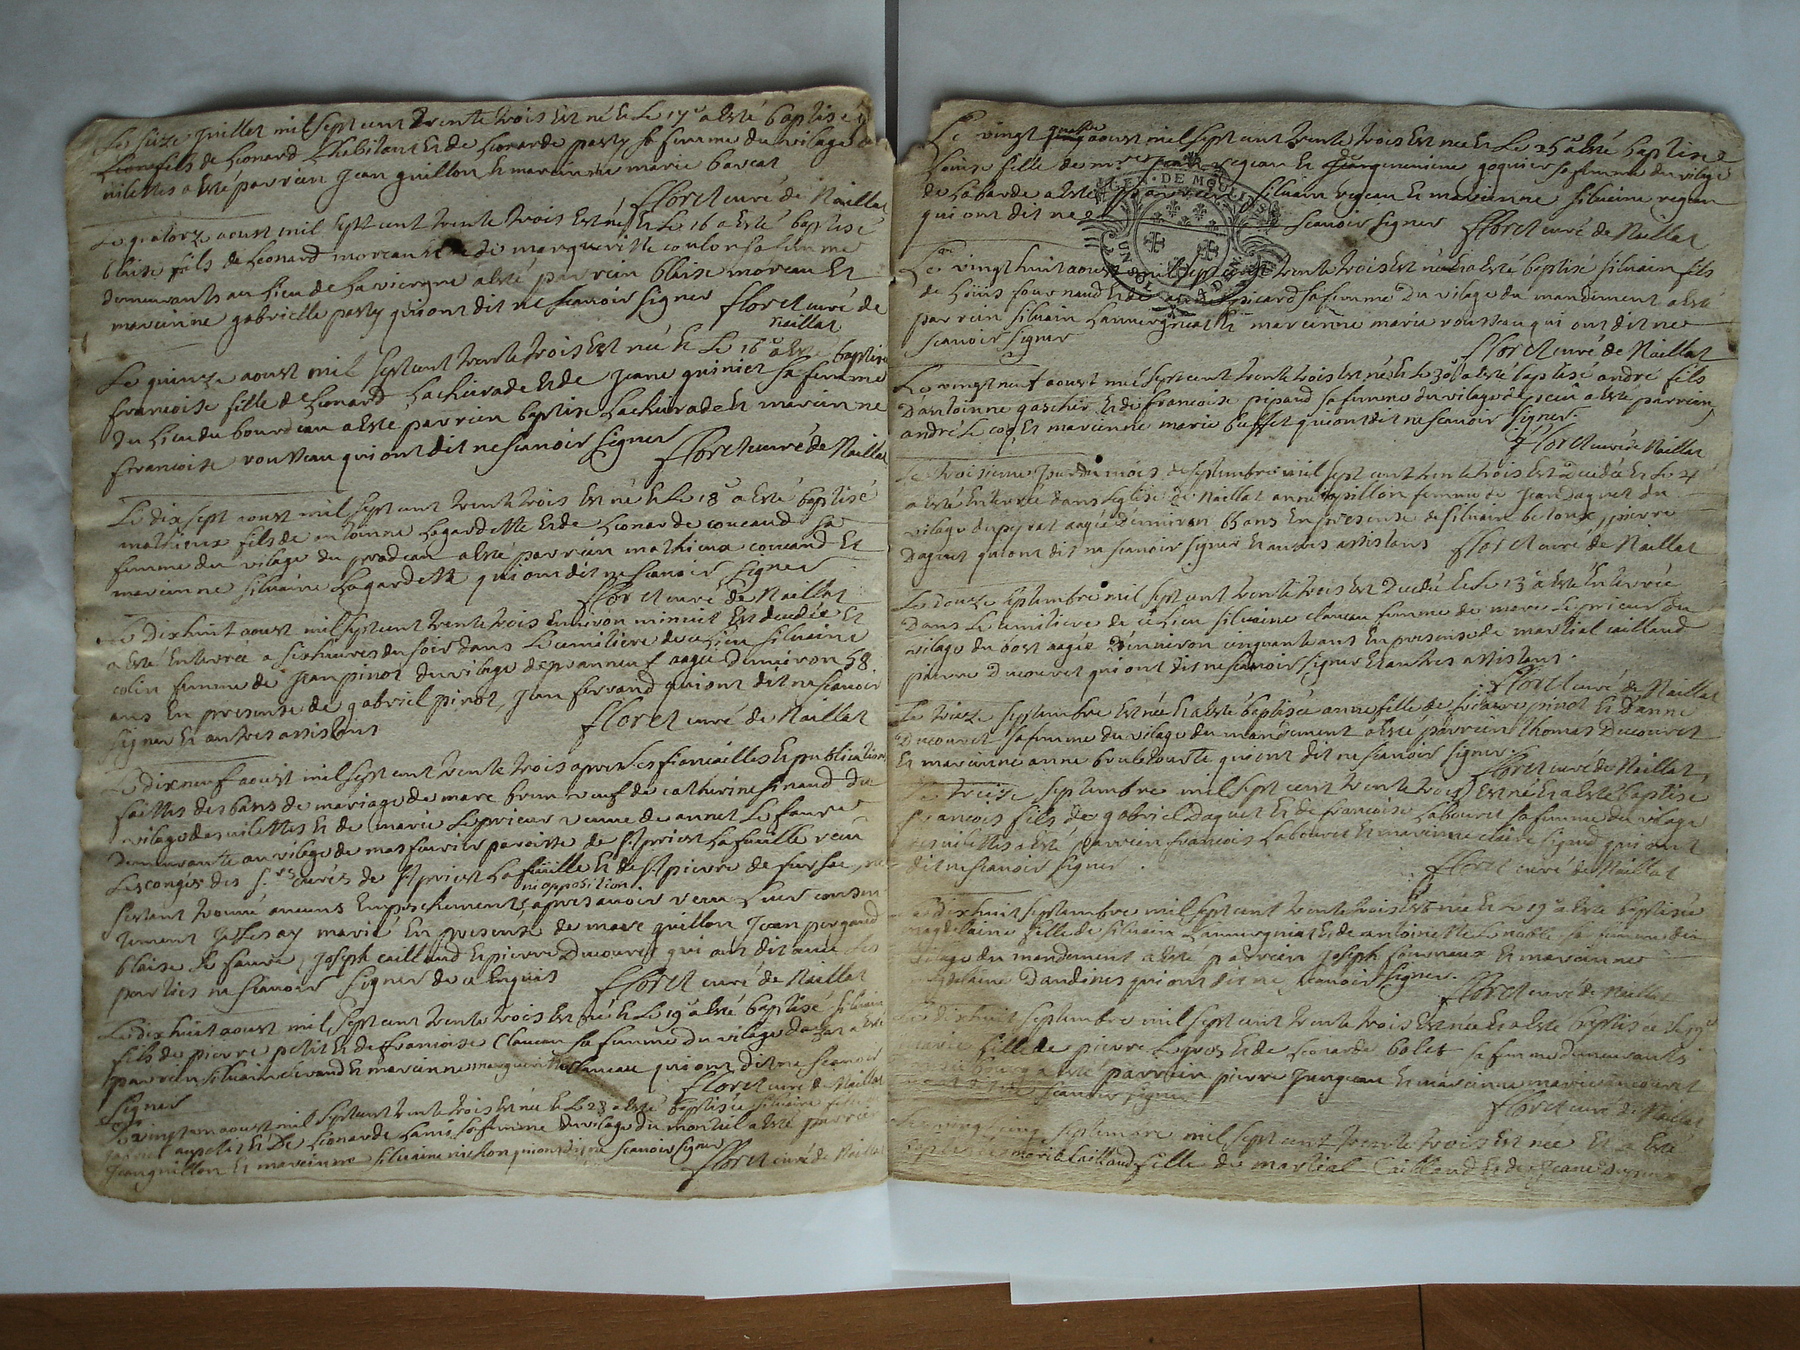 Le seize juillet mil sept cent trente trois est né et Le 17e a esté baptisé
Leon fils de Leonard Lhabitant et de Leonarde pasty sa femme du vilage
vilettes a esté parrien Jean guillon et marienne marie barcat
floret curé de Naillat
Le quatorze aoust mil sept cent trente trois est né et Le 16 a esté baptisé
blaise fils de Leonard moreau et de margueritte coulon sa femme
demeurants au Lieu de La viergne a esté parrien blaise moreau Et
marienne gabrielle pasty qui ont dit ne scavoir signer floret curé de
naillat
Le quinze aoust mil sept cent trente trois est née et Le 16e a esté baptisée
francoise fille de Leonard Lacheirade et de Jeane guiniet sa femme
du Lieu du bourdeau a esté parrien baptise Lacheirade et marienne
francoise rouveau qui ont dit ne scavoir signer floret curé de Naillat
Le dix sept aoust mil sept cent trente trois est né et Le 18e a esté baptisé
mathieux fils de antoinne Lagardette et de Leonarde couraud sa
femme du vilage du pradeau a esté parrien mathieux couraud et
marienne silvaine Lagardette qui ont dit ne scavoir signer
floret curé de Naillat
Le dix huit aoust mil sept cent trente trois environ minuit est decedée et
a esté enterrée a six heures du soir dans Le cemitiere de ce Lieu silvaine
colin femme de Jean pinot du vilage de peuanneuf aagée d'environ 58
ans en presence de gabriel pinot, Jean ferrand qui ont dit ne scavoir
signer et autres assistans floret curé de Naillat
Le dix neuf aoust mil sept cent trente trois apres Les fiancailles et publications
faittes des bans de mariage de marc brun veuf de catherine finaud du
vilage des vilettes et de marie Leprieur veuve de annet Le faure
demeurante au vilage de mas furier paroisse de st priest La feuille veu
Les congés des srs curés de st priest La feuille et de st pierre de fursac, ne
ni opposition
sestant trouvé aucuns enpeschements apres avoir receu Leur consen
tement Je Les ay marié en presence de marc guillon Jean pergaud
blaise Le faure, Joseph cailland et pierre Ducouret qui ont dit avec Les
parties ne scavoir signer de ce enquis floret curé de Naillat
Le dix huit aoust mil sept cent trente trois est né et Le 19e a esté baptisé silvain
fils de pierre petit et de francoise Claveau sa femme du vilage a esté
parrien silvain evrand et marienne margueritte Claveau qui ont dit ne scavoir
signer floret curé de Naillat
Le vingt un aoust mil sept cent trente trois est née et Le 23 a esté baptisée silvaine fille
et de Leonarde Lamis sa femme du vilage du monteil a esté parrien
Jean guillon et marienne silvaine michon qui ont dit ne scavoir signer
floret curé de Naillat
Le vingt quatre aoust mil sept cent trente trois est née et Le 25e a esté baptisée
Louise fille de regeau et de gemenime goguier sa femme du vilage
de La barde a esté parrien silvain regeau et marienne silvaine regeau
qui ont dit ne scavoir signer floret curé de Naillat
GEN. DE MOULINS
UN SOL 4 DEN
Le vingt huit aoust mil sept cent trente trois est né et a esté baptisé silvain fils
de Louis fournaud et de picard sa femme du vilage du mandement a esté
parrien silvain Lauvergneat et marienne marie rousseau qui ont dit ne
scavoir signer
floret curé de Naillat
Le vingt neuf aoust mil sept cent trente trois est né et Le 30e a esté baptisé andré fils
D'antoinne gaschier et de francoise pipaud sa femme du vilage a esté parrien
andré Le coq et marienne marie buffet qui ont dit ne scavoir signer.
floret curé de Naillat
Le troisieme jour du mois de septembre mil sept cent trente trois est decedée et Le 4
a esté enterrée dans Leglise de Naillat anne papillon femme de Jean Daguet du
vilage du peyrat aagée d'environ 65 ans en presence de silvain betoux, pierre
Daguet qui ont dit ne scavoir signer et autres assistans floret curé de Naillat
Le Douze septembre mil sept cent trente trois est Decedée et Le 13e a esté enterrée
Dans Le cemitiere de ce Lieu silvaine claveau femme de marc Leprieur du
vilage du bost aagée D'environ cinquante ans en presence de martial cailland
pierre Ducouret qui ont dit ne scavoir signer et autres assistans.
floret curé de Naillat
Le treize septembre est née et a esté baptisée anne fille de pinot et D'anne
Ducouret sa femme du vilage du mandement a esté parrien thomas Ducouret
et marienne anne bouletourte qui ont dit ne scavoir signer
floret curé de Naillat
Le treize septembre mil sept cent trente trois est né et a esté baptisé
francois fils de gabriel Daguet et de francoise Labouret sa femme du vilage
des vilettes a esté parrien francois Labouret et marienne claire sigaud qui ont
dit ne scavoir signer.
floret curé de Naillat
Le dix huit septembre mil sept cent trente trois est née et Le 19e a esté baptisée
magdelaine fille de silvain Lauvergneat et de antoinette Lenoble sa femme du
vilage du mandement a esté parrien Joseph fourneux et marienne
magdelaine Dandines qui ont dit ne scavoir signer.
floret curé de Naillat
Le dix huit septembre mil sept cent trente trois est née et a esté baptisée Le 19e
marie fille de pierre Legros et de Leonarde bolet sa femme demeurants
en ce bourg a esté parrien pierre Jungeau et marienne marie Ducouret
qui ont dit ne scavoir signer
floret curé de Naillat
Le vingt cinq septembre mil sept cent trente trois est née et a esté
baptisée marie Cailland fille de martial Cailland et de Jeane Dupeux